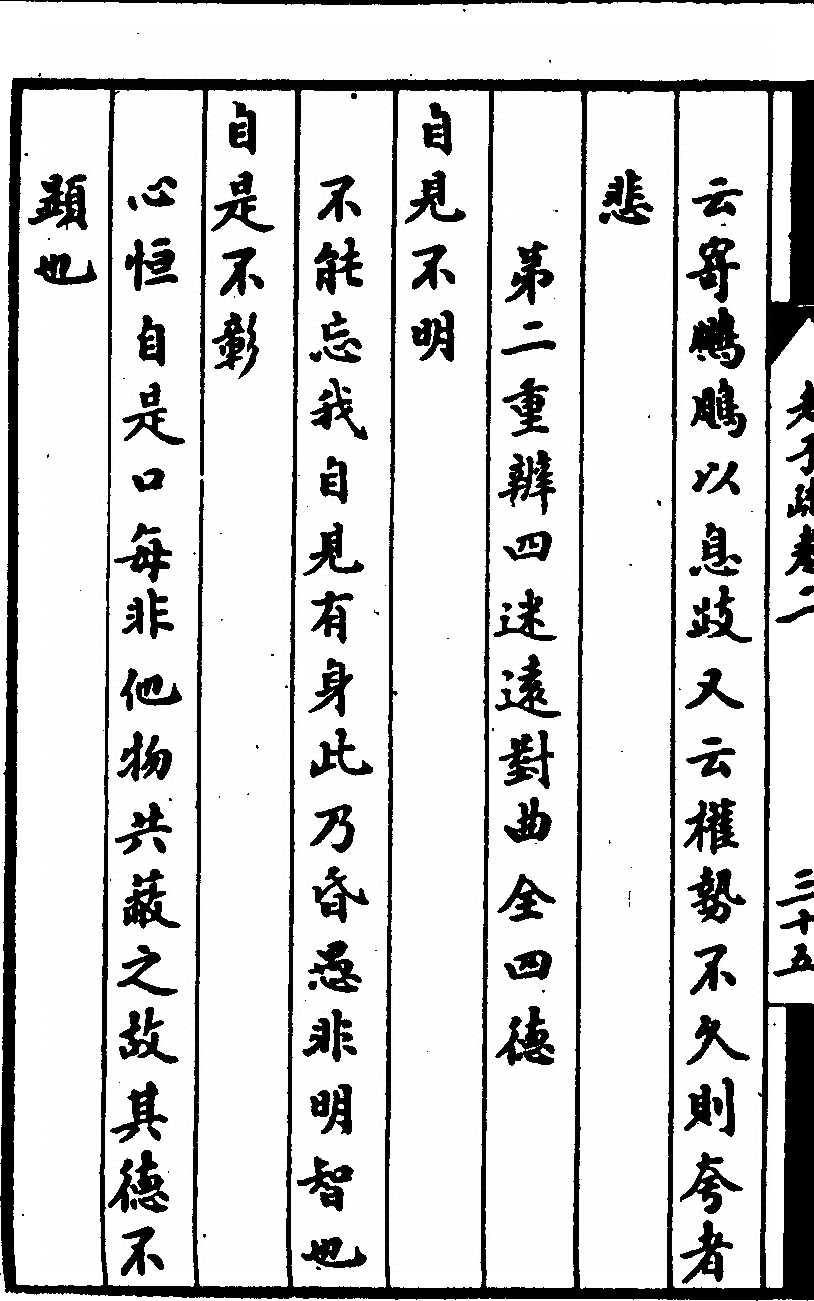 老子疏卷二　三十五
云寄鵬鷃以息跂又云權勢不久則夸者
悲
第二重辨四迷遠對曲全四德
自見不明
不能忘我自見有身此乃昏愚非明智也
自是不彰
心恒自是口每非他物共蔽之故其德不
顯也